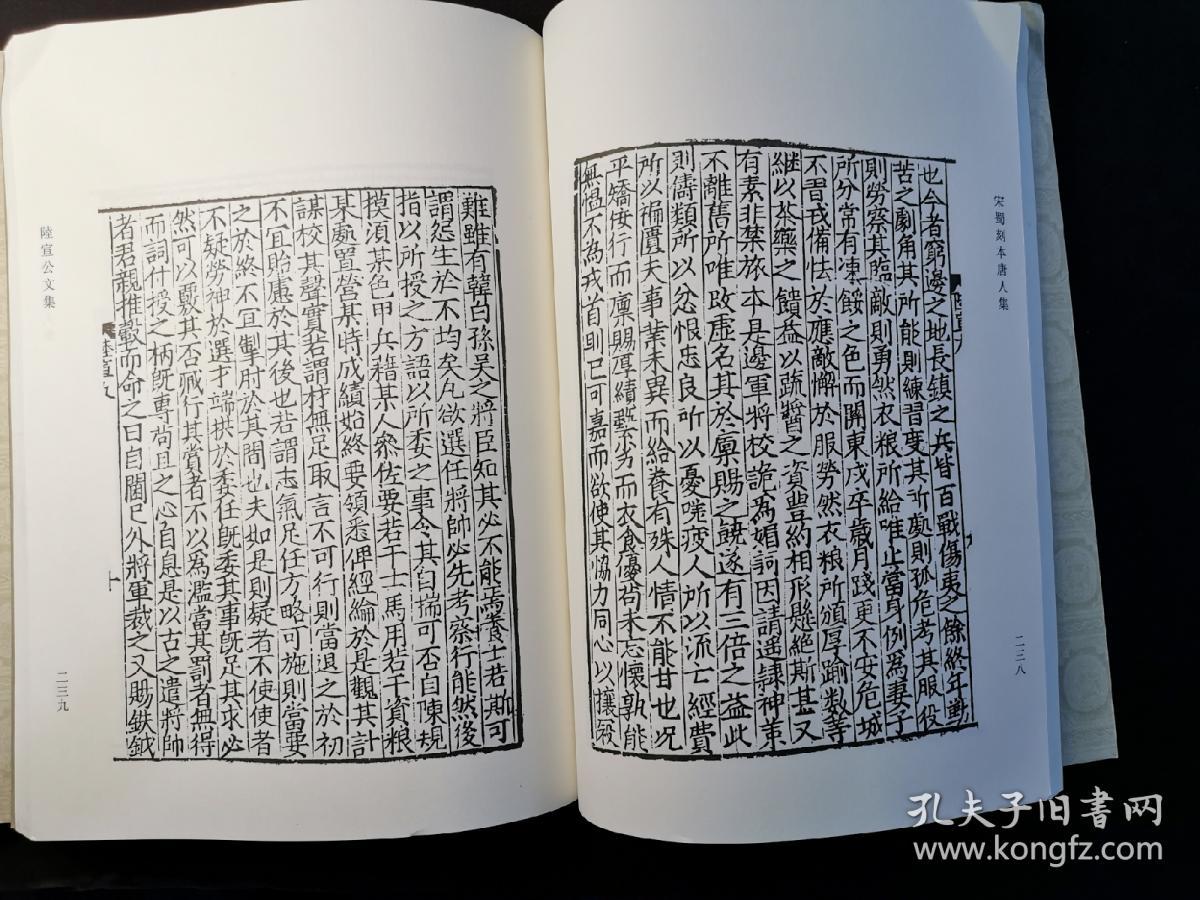 宋蜀刻本唐人集
二三八
也今者窮邊之地長鎮之兵皆百戰傷夷之餘終年勤
苦之劇角其所能則練習度其所處則孤危考其服役
則勞察其臨敵則勇然衣粮所給唯止當身例為妻子
所分常有凍餒之色而關東戍卒歲月踐更不安危城
不習戎備怯於應敵懈於服勞然衣粮所頒厚踰數等
継以茶藥之饋益以蔬醬之資豐約相形懸絕斯甚又
有素非禁旅本是邊軍將校詭為媚詞因請遥隸神策
不離舊所唯改虛名其於廩賜之饒遂有三倍之益此
則儔類所以忿恨忠良所以憂嗟疲人所以流亡經費
所以褊匱夫事業未異而給養有殊人情不能甘也况
乎矯佞行而廩賜厚績藝劣而衣食優苟未忘懷孰能
無愠不為戎首則已可嘉而欲使其協力同心以攘寇
難雖有韓白孫吳之將臣知其必不能焉養士若斯可
謂怨生於不均矣凡欲選任將帥必先考察行能然後
指以所授之方語以所委之事令其自揣可否自陳規
摸須某色甲兵藉某人叅佐要若干士馬用若干資粮
某處置營某時成績始終要領悉俾經綸於是觀其計
謀校其聲實若謂材無足取言不可行則當退之於初
不宜貽慮於其後也若謂志氣足任方略可施則當要
之於終不宜掣肘於其間也夫如是則疑者不使使者
不疑勞神於選才端拱於委任既委其事既足其求必
然可以覈其否臧行其賞者不以為濫當其罰者無得
而詞付授之柄既專苟且之心自息是以古之遣將帥
者君親推轂而命之曰自閫已外將軍裁之又賜鈇鉞
十
陸宣公文集
二三九
孔夫子旧书网
www.kongfz.com